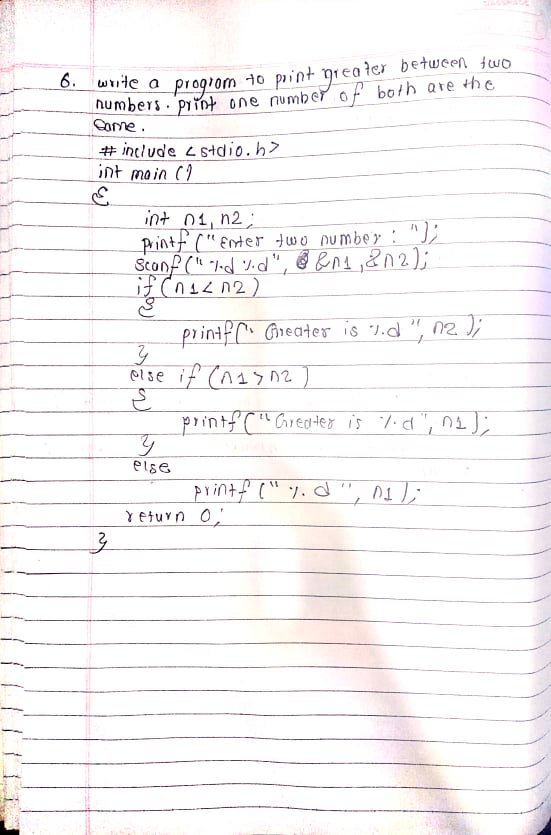 6. write a program to print greater between two
numbers. print one number of both are the
same.
#include <stdio.h>
int main ()
{
int n1, n2;
printf ("Enter two number : ");
scanf ("%d %d", &n1, &n2);
if (n1 < n2)
{
printf (" Greater is %d ", n2 );
}
else if (n1 > n2 )
{
printf ("Greater is %d", n1);
}
else
printf (" %d ", n1 );
return 0;
}